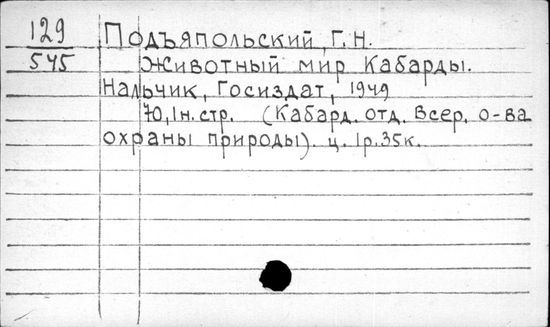 129 Подъяпольский, Г.Н.
545 Животный мир Кабарды.
Нальчик, Госиздат, 1949
70,1н.стр. (Кабард. отд. Всер. о-ва
охраны природы). ц. 1р.35к.